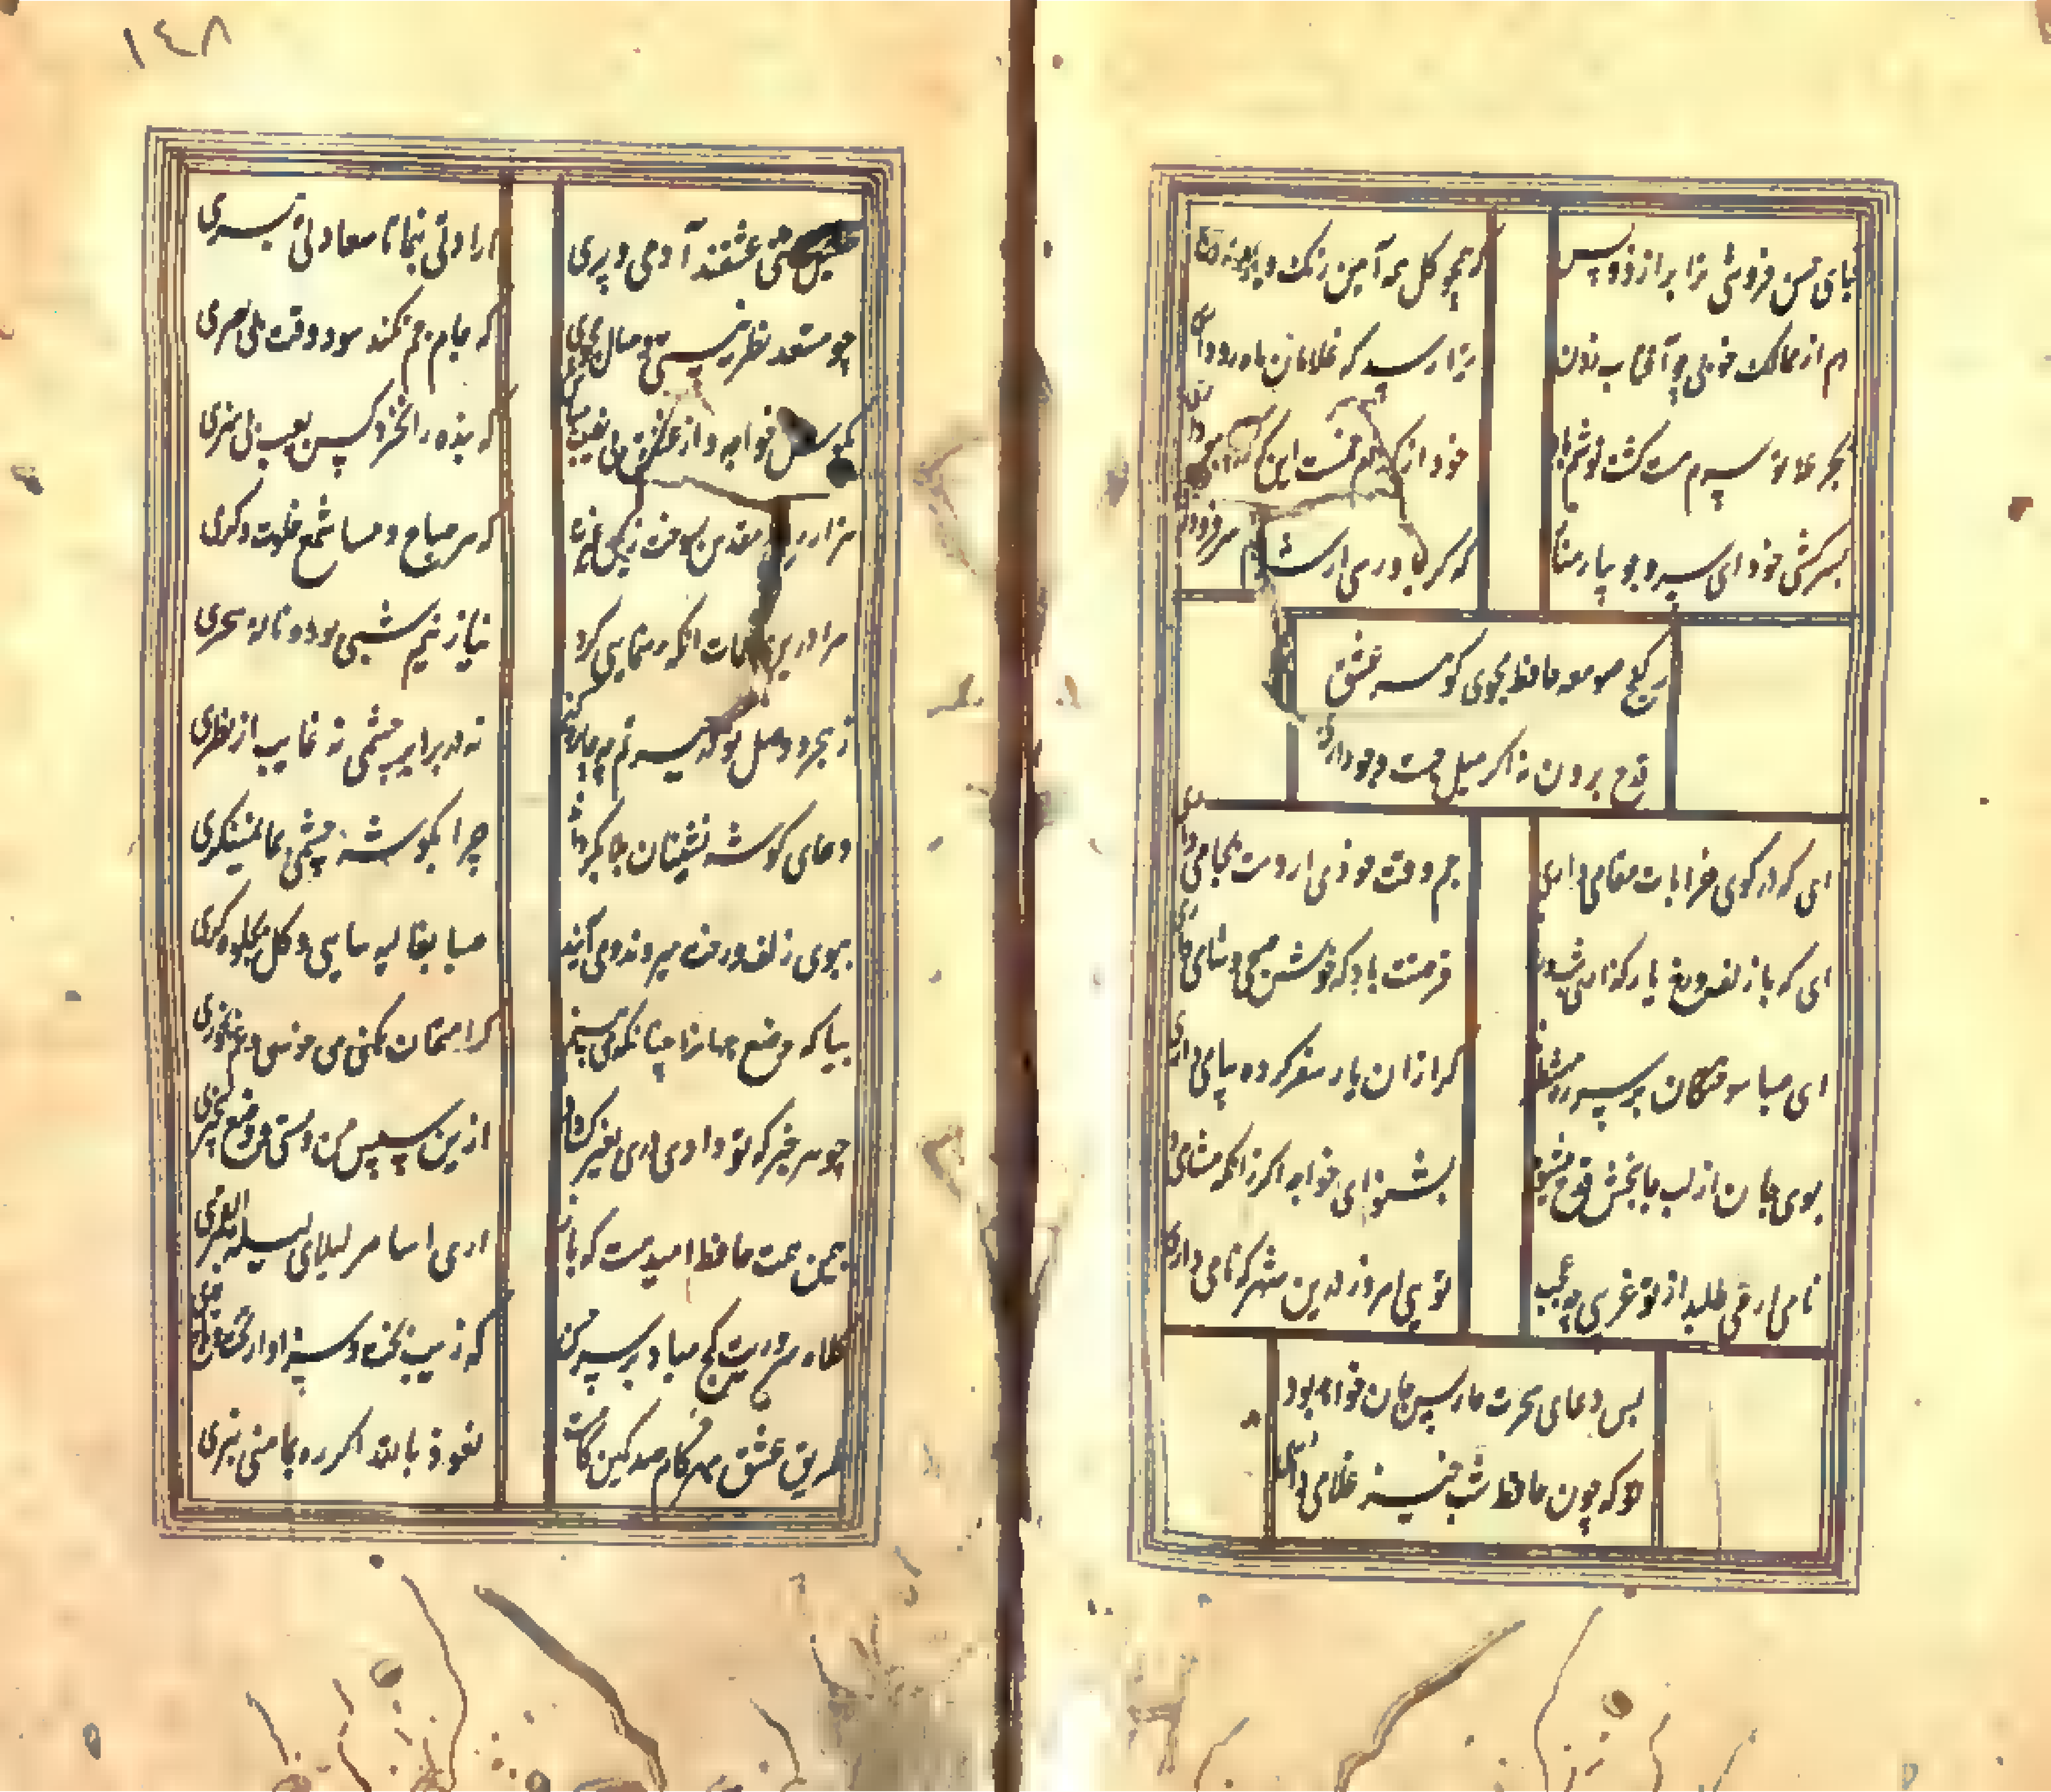 قبای حسن فروشی ترا برازد و بس
که همچو گل همه آیین رنک و بو داری
دم از ممالک خوبی چو آفتاب زدن
ترا رسد که غلامان ماه رو داری
بجرعه تو سرم مست کشت نوشت باد
خود از کدام خمست این که در سبو داری
بسرکشی خود ای سرو جویبار مناز
که کر باو رسی از شرم سر فرود اری
ز کنج صومعه حافظ مجوی کوهر عشق
قدم برون نه اکر میل جست و جو داری
ای که در کوی خرابات مقامی داری
جم وقت خودی ار دست بجامی داری
ای که با زلف و رخ یار کذاری شب و روز
فرصتت باد که خوش صبحی و شامی داری
ای صبا سوختکان بر سر ره منتظرند
کر ازان یار سفر کرده پیامی داری
بوی جان از لب جانبخش قدح میشنوم
بشنو ای خواجه اکر زانکه مشامی داری
نامی ار می طلبد از تو غریبی چه عجب
تویی امروز درین شهر که نامی داری
بس دعای سحرت حارس جان خواهد بود
تو که چون حافظ شبخیز غلامی داری
١٤٨
طفیل هستی عشقند آدمی و پری
ارادتی بنما تا سعادتی ببری
چو مستعد نظر نیستی وصال مجوی
که جام جم نکند سود وقت بی بصری
بکوش خواجه و از عشق بی نصیب مباش
که بنده را نخرد کس بعیب بی هنری
که هر صباح و مسا شمع خلوت دکری
مرا درین ظلمات انکه رهنمایی کرد
نیاز نیم شبی بود و ناله سحری
ز هجر و وصل تو در حیرتم چه چاره کنم
نه در برابر چشمی نه غایب از نظری
دعای کوشه نشینان بلا بکرداند
چرا بکوشه چشمی بما نمینکری
ببوی زلف و رخت میروند و می آیند
صبا بغالیه سایی و کل بجلوه کری
بیا که وضع جهانرا چنانکه می بینم
کر امتحان بکنی می خوری و غم نخوری
چو هر خبر که تو دادی
ازین سپس من و مستی و وضع بیخبری
بیمن همت حافظ امید هست که باز
اری اسامر لیلای لیلة القمری
کلاه سروریت کج مباد بر سر حسن
که زیب بخت و سزاوار تخت و تاج سری
طریق عشق
نعوذ بالله اکر ره بمامنی نبری